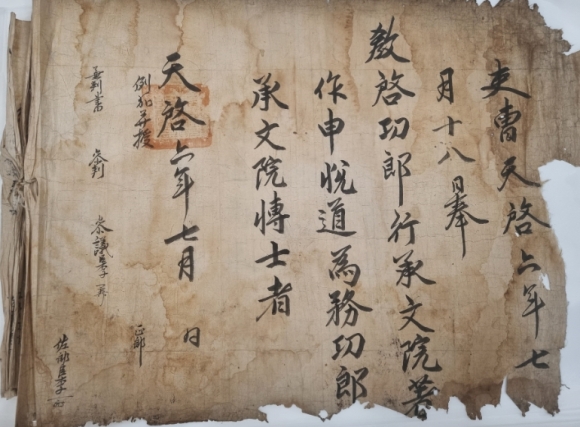 吏曹天啓六年七
月十八日奉
教啓功郎行承文院著
作申悅道為務功郎
承文院博士者
天啓六年七月 日
例加并授
正郎
判書 參判 參議李
佐郎